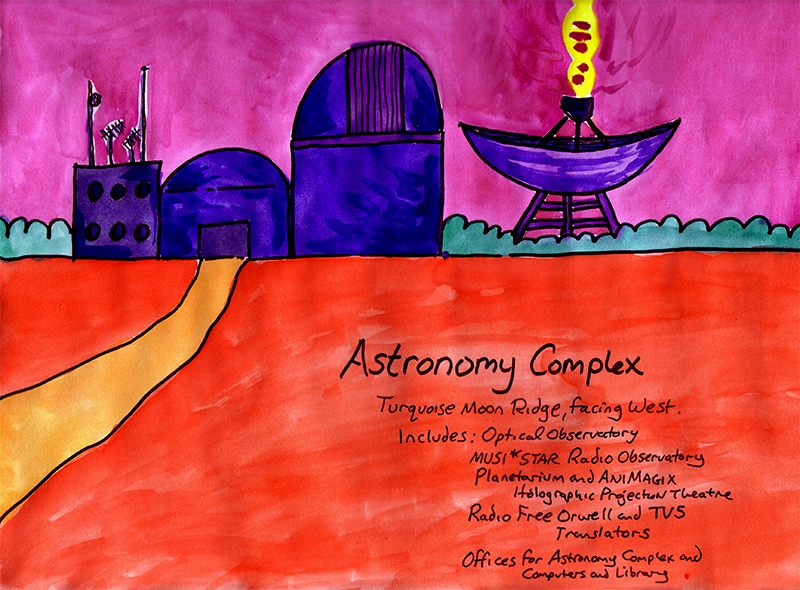 Astronomy Complex
Turquoise Moon Ridge, facing West.
Includes: Optical Observatory
MUSI*STAR Radio Observatory
Planetarium and ANIMAGIX
Holographic Projection Theatre
Radio Free Orwell and TV5
Translators
Offices for Astronomy Complex and
Computers and Library